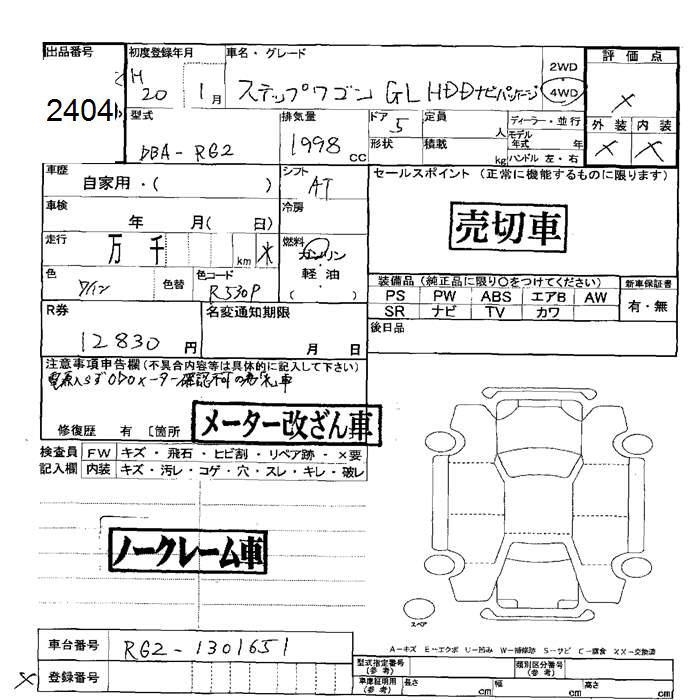 出品番号 初度登録年月 車名・グレード 評価点
2404
H20 1月 ステップワゴン GL HDDナビパッケージ 2WD 4WD ×
型式 排気量 ドア 定員 ディーラー・並行 外装 内装
DBA-RG2 1998cc 5 人 モデル年式 年 × ×
形状 積載 kg ハンドル 左・右
車歴 自家用・( ) シフト AT セールスポイント (正常に機能するものに限ります)
車検 年 月( 日) 冷房
売切車
走行 万 千 km * 燃料 ガソリン・軽油 ( )
色 ワイン 色替 色コード R530P
装備品 (純正品に限り○をつけてください) 新車保証書
PS PW ABS エアB AW 有・無
SR ナビ TV カワ
R券 名変通知期限 後日品
12830円 月 日
注意事項申告欄(不具合内容等は具体的に記入して下さい)
電源入らずODOメーター確認不可の為
メーター改ざん車
修復歴 有 [箇所
検査員記入欄 FW キズ・飛石・ヒビ割・リペア跡・×要
内装 キズ・汚レ・コゲ・穴・スレ・キレ・破レ
ノークレーム車
スペア
車台番号 RG2-1301651
A-キズ E-エクボ U-凹み W-補修跡 S-サビ C-腐食 XX-交換済
× 登録番号
型式指定番号(参考) 類別区分番号(参考)
車庫証明用(参考) 長さ cm 幅 cm 高さ cm